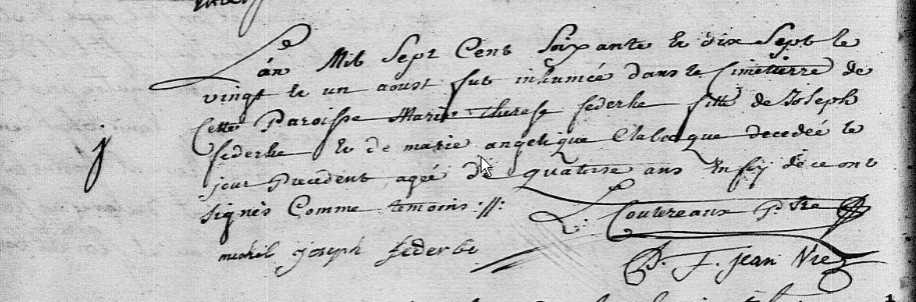 L'an Mil Sept Cent Soixante et dix Sept le
vingt et un aoust fut inhumée dans le Cimetierre de
Cette Paroisse Marie therese federbe fille de Joseph
federbe et de marie angelique Clabecque decedée le
jour precedent agée de quatorse ans En foy de ce ont
signés Comme temoins :||:
L. Coutereaux
michel joseph federbe
J. F. jean